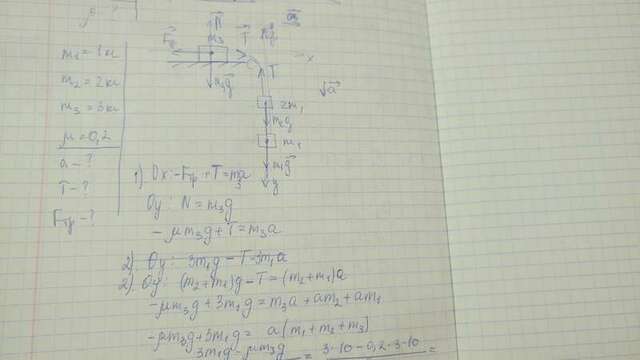 m₁ = 1кг
m₂ = 2кг
m₃ = 3кг
μ = 0,2
a - ?
T - ?
Fтр - ?
m₃g
T
2m₁
m₁
m₁g
a
x
y
1) Ox: -Fтр + T = m₃a
Oy: N = m₃g
-μm₃g + T = m₃a
2) Oy: 3m₁g - T = 3m₁a
2) Oy: (m₂+m₁)g - T = (m₂+m₁)a
-μm₃g + 3m₁g = m₃a + am₂ + am₁
-μm₃g + 3m₁g = a(m₁ + m₂ + m₃)
3m₁g - μm₃g = 3·10 - 0,2·3·10 =